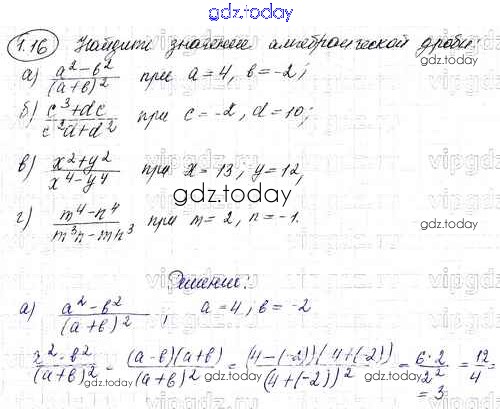 gdz.today
1.16 Найдите значение алгебраической дроби:
а) (a² - b²)/(a+b)² при a = 4, b = -2;
б) (c³+dc)/(c²d+d²) при c = -2, d = 10;
в) (x²+y²)/(x⁴-y⁴) при x = 13, y = 12,
gdz.today
г) (m⁴-n⁴)/(m³n-mn³) при m = 2, n = -1.
Решение:
а) (a²-b²)/(a+b)², a = 4; b = -2
(a²-b²)/(a+b)² = (a-b)(a+b)/(a+b)² = (4-(-2))(4+(-2))/(4+(-2))² = 6·2/2² = 12/4 =
= 3
gdz.today